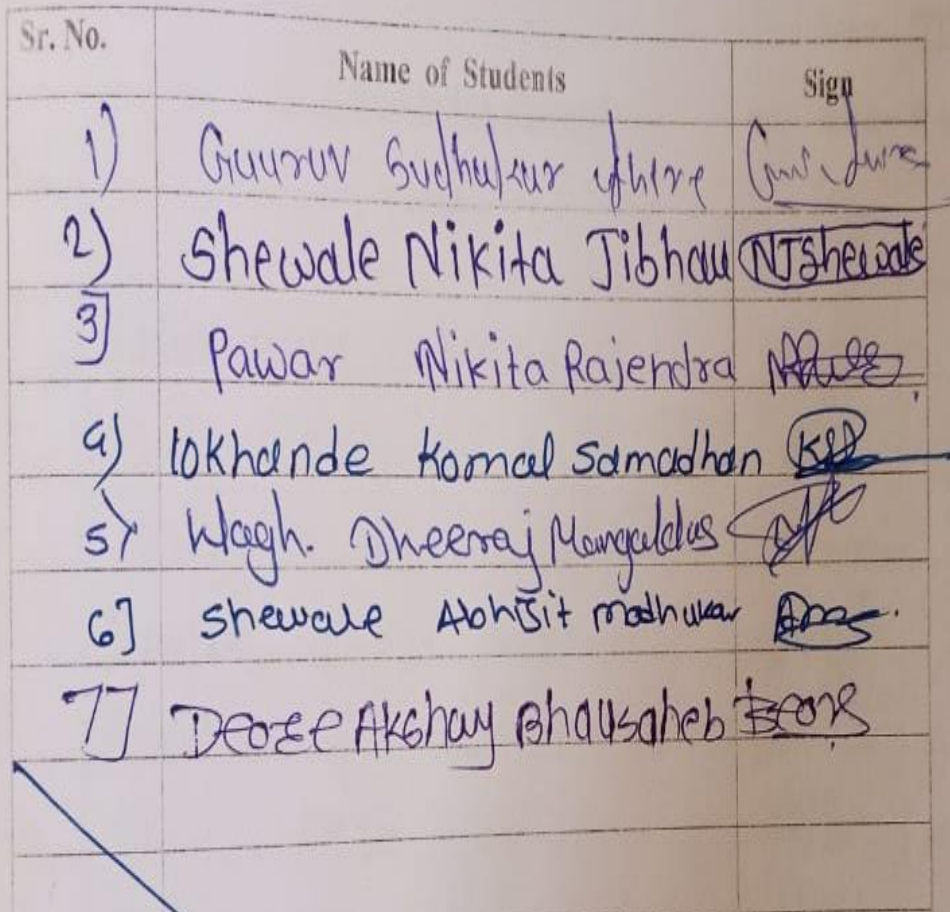 Sr. No. Name of Students Sign
1) Gaurav Sudhakar Ahire
2) Shewale Nikita Jibhau NJShewale
3] Pawar Nikita Rajendra
4) lokhande Komal Samadhan
5) Wagh. Dheeraj Mangaldas
6] Shewale Abhijit madhukar
7] Deore Akshay Bhausaheb Deore